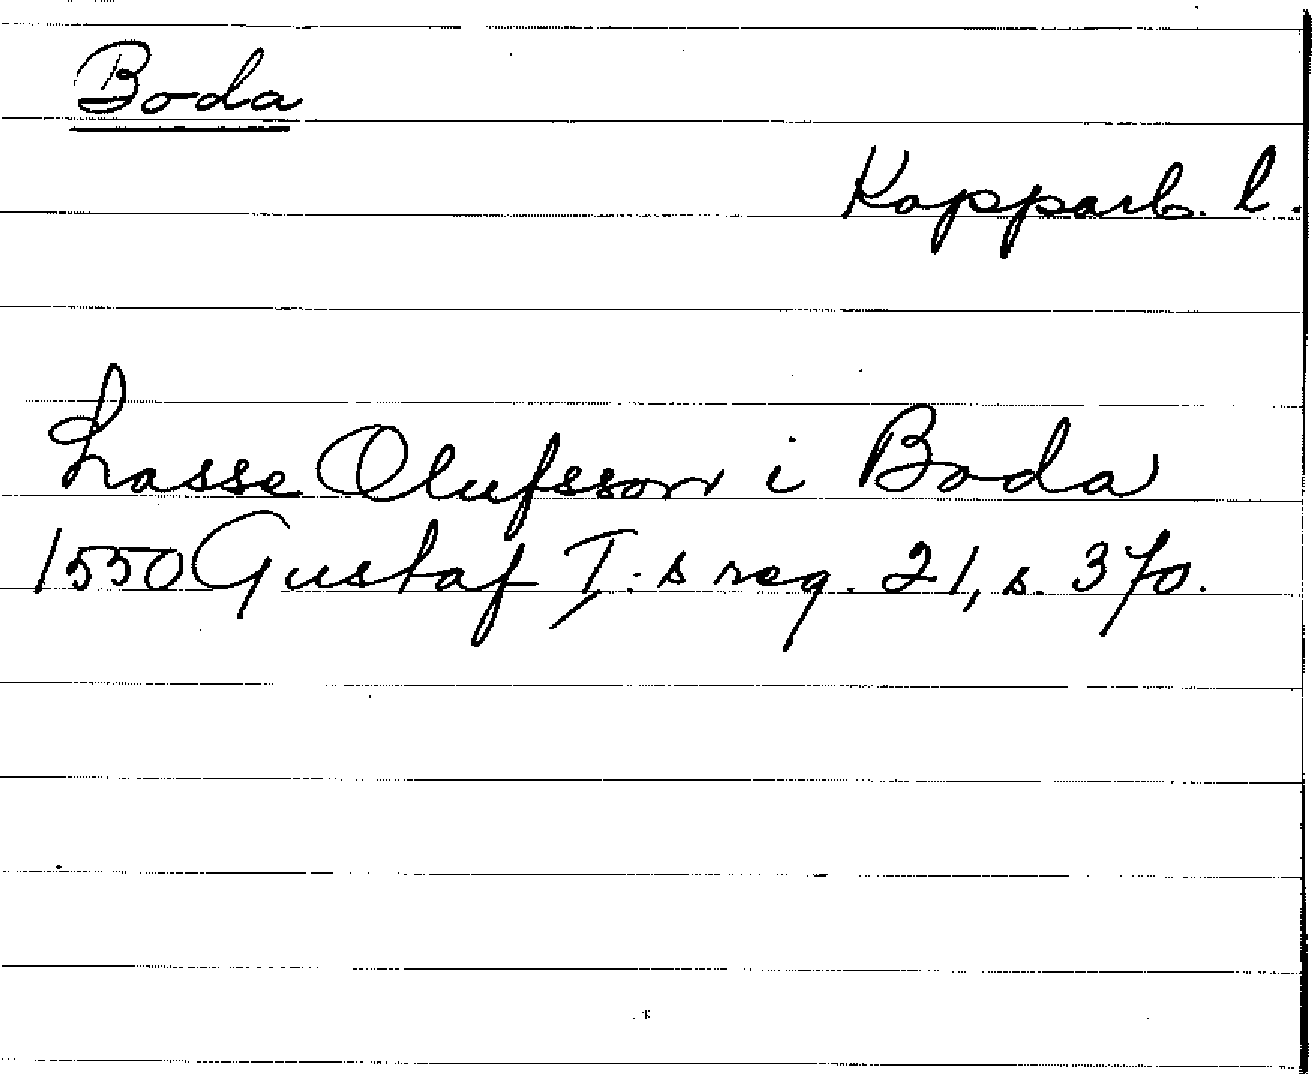 Boda
Kopparb. l.
Lasse Olufsson i Boda
1550 Gustaf I:s reg. 21, s. 370.